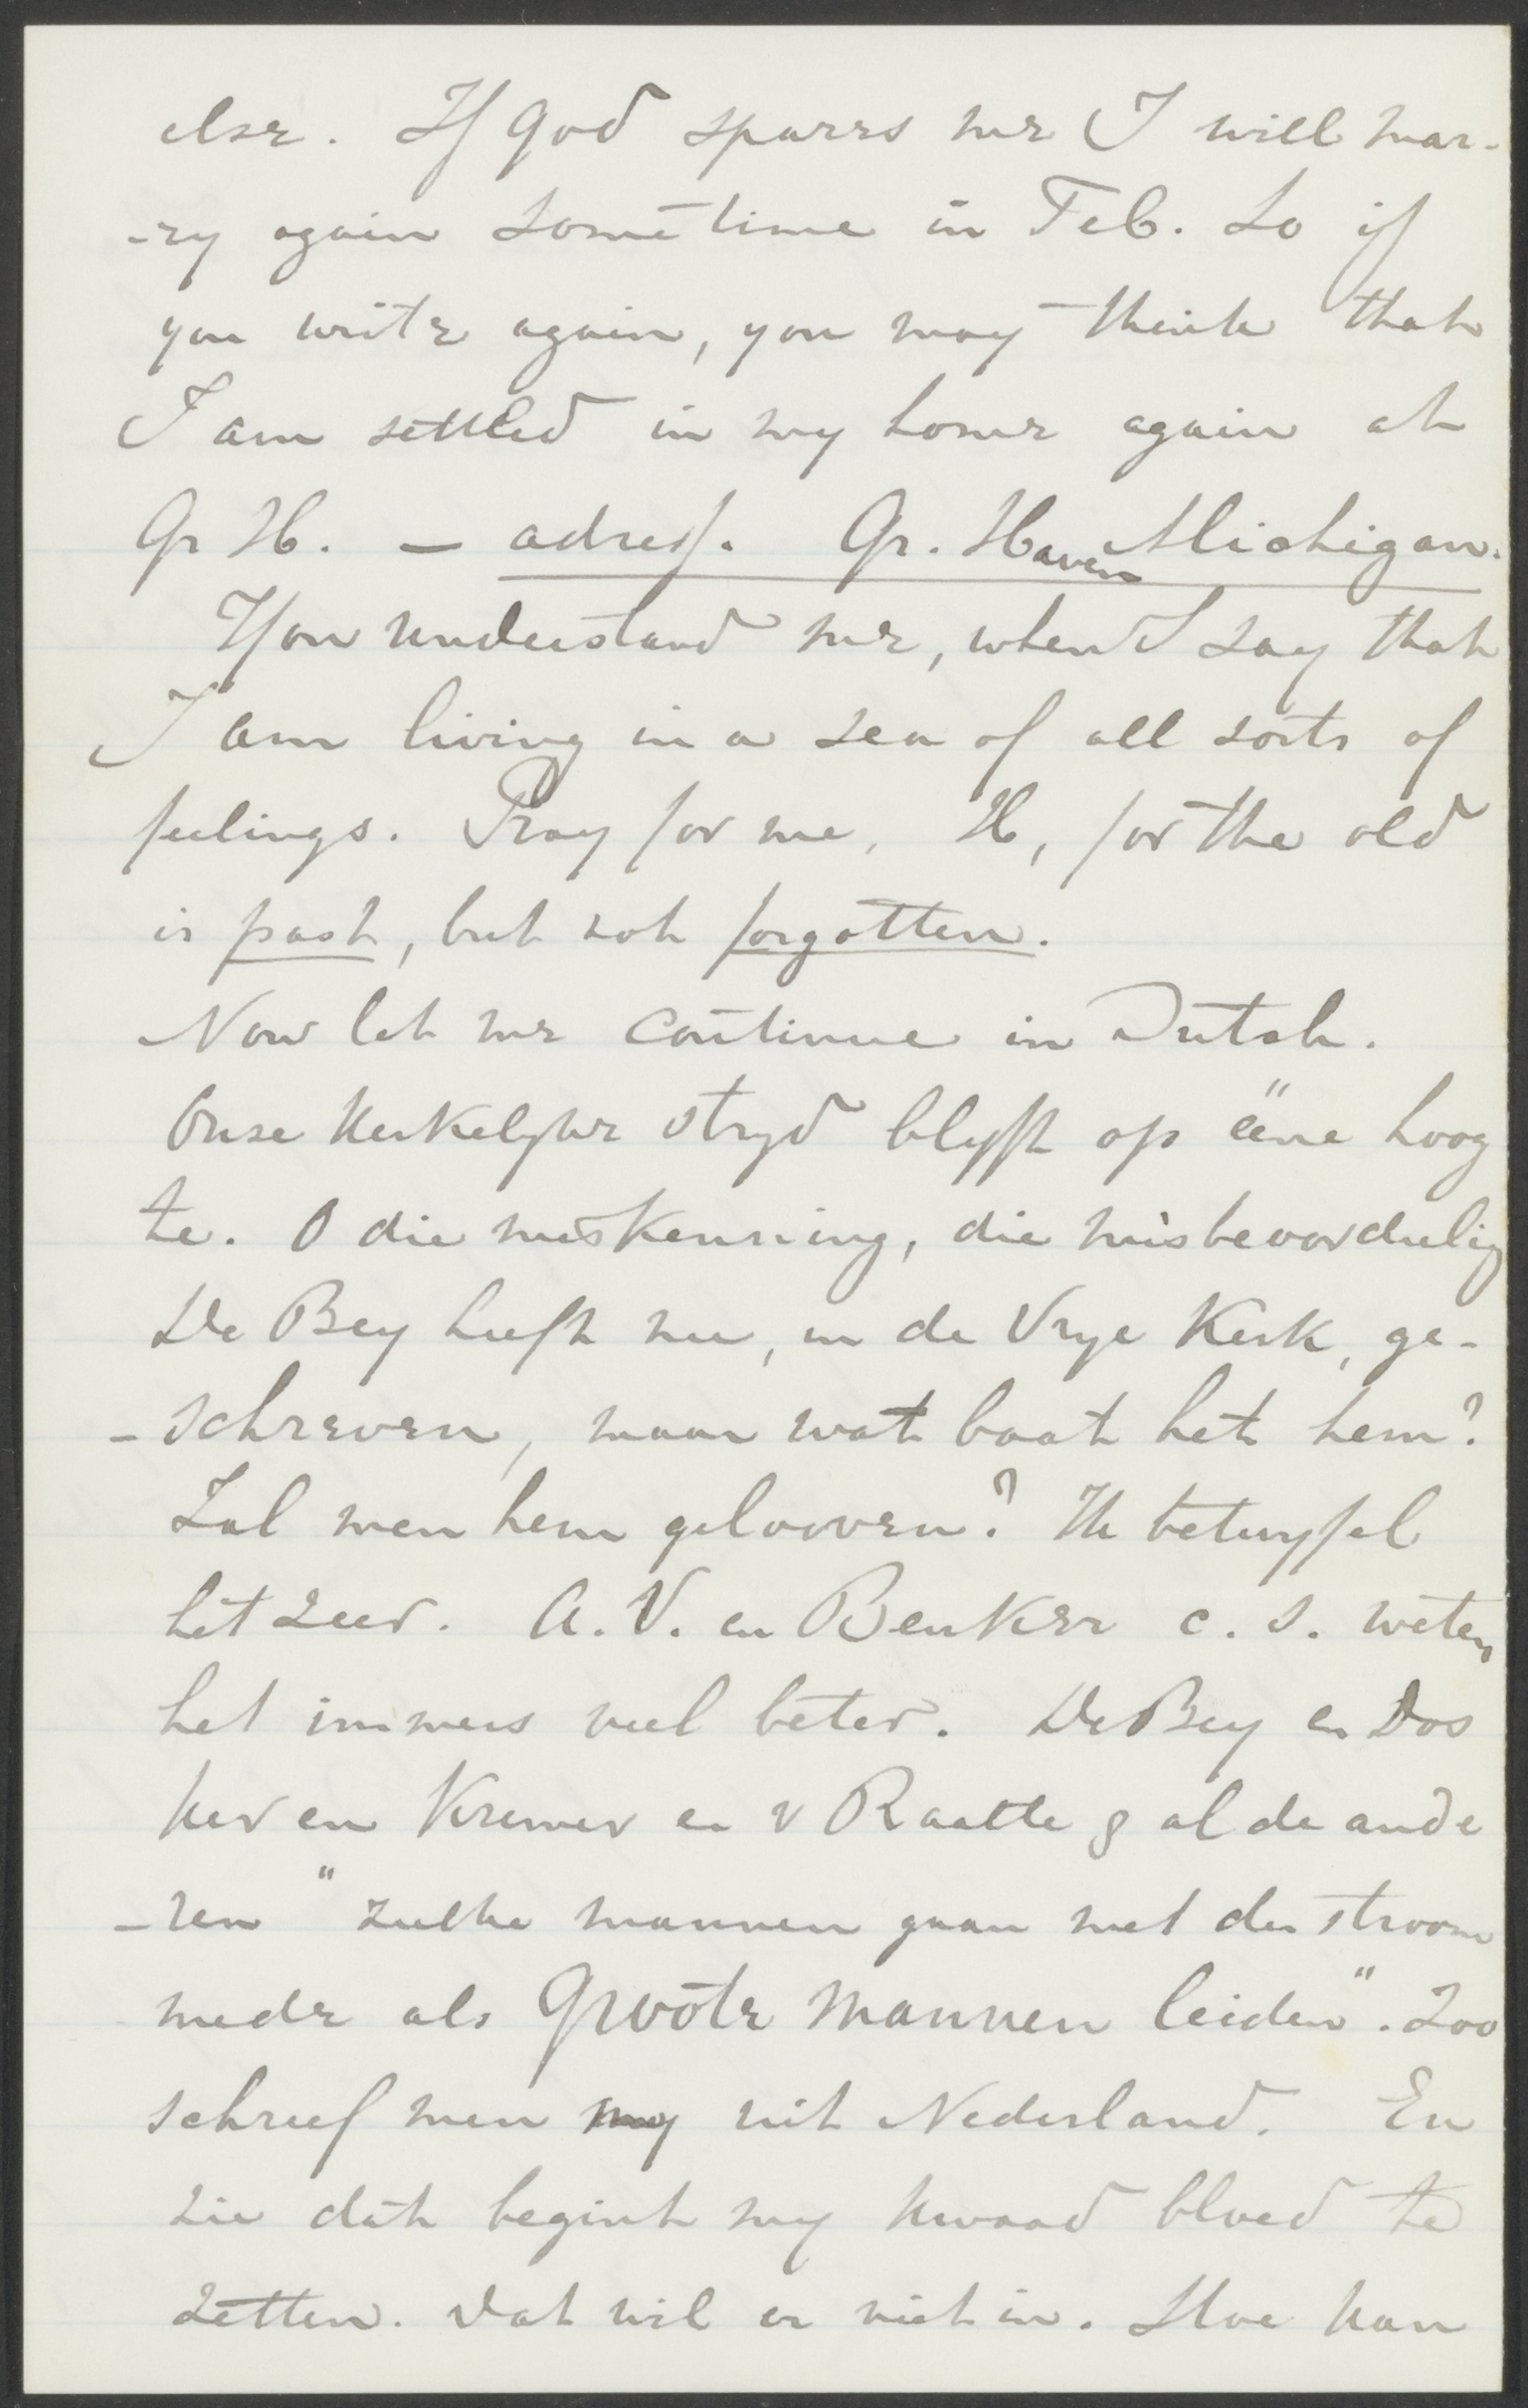 else. If God spares me I will mar-
-ry again sometime in Feb. So if
you write again, you may think that
I am settled in my home again at
Gr H. — adress. Gr. Haven Michigan.
You understand me, when I say that
I am living in a sea of all sorts of
feelings. Pray for me, H, for the old
is past, but not forgotten.
Now let me continue in Dutch.
Onze Kerkelyke stryd blyft op ëene hoog
te. O die miskenning, die misbeoordeelig
De Bey heeft nu, in de Vrye Kerk, ge-
-schreven, maar wat baat het hem?
Zal men hem gelooven? Ik betwyfel
het zeer. A. V. en Beuker c. s. weten
het immers veel beter. De Bey en Dos
ker en Kremer en v Raalte & al de ande
-ren "zulke mannen gaan met den stroom
mede als Groote mannen leiden". Zoo
schreef men my uit Nederland. En
zie dat begint my kwaad bloed te
zetten. Dat wil er niet in. Hoe kan